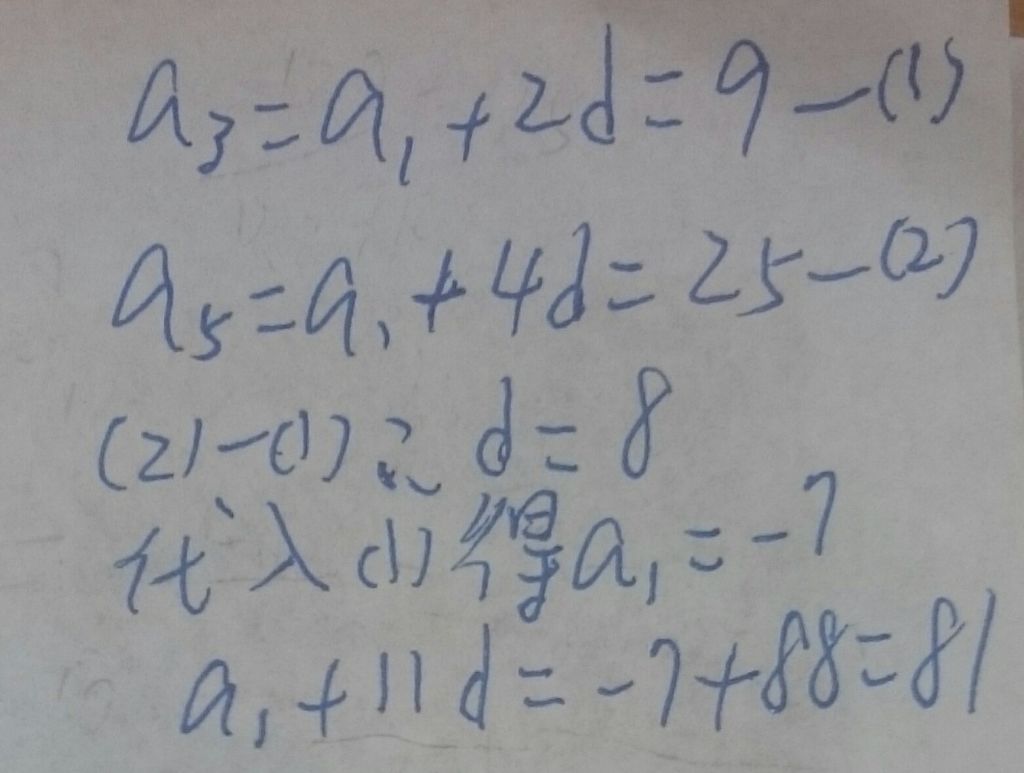 a₃=a₁+2d=9—(1)
a₅=a₁+4d=25—(2)
(2)-(1) ∴ d=8
代入(1)得a₁=-7
a₁+11d=-7+88=81